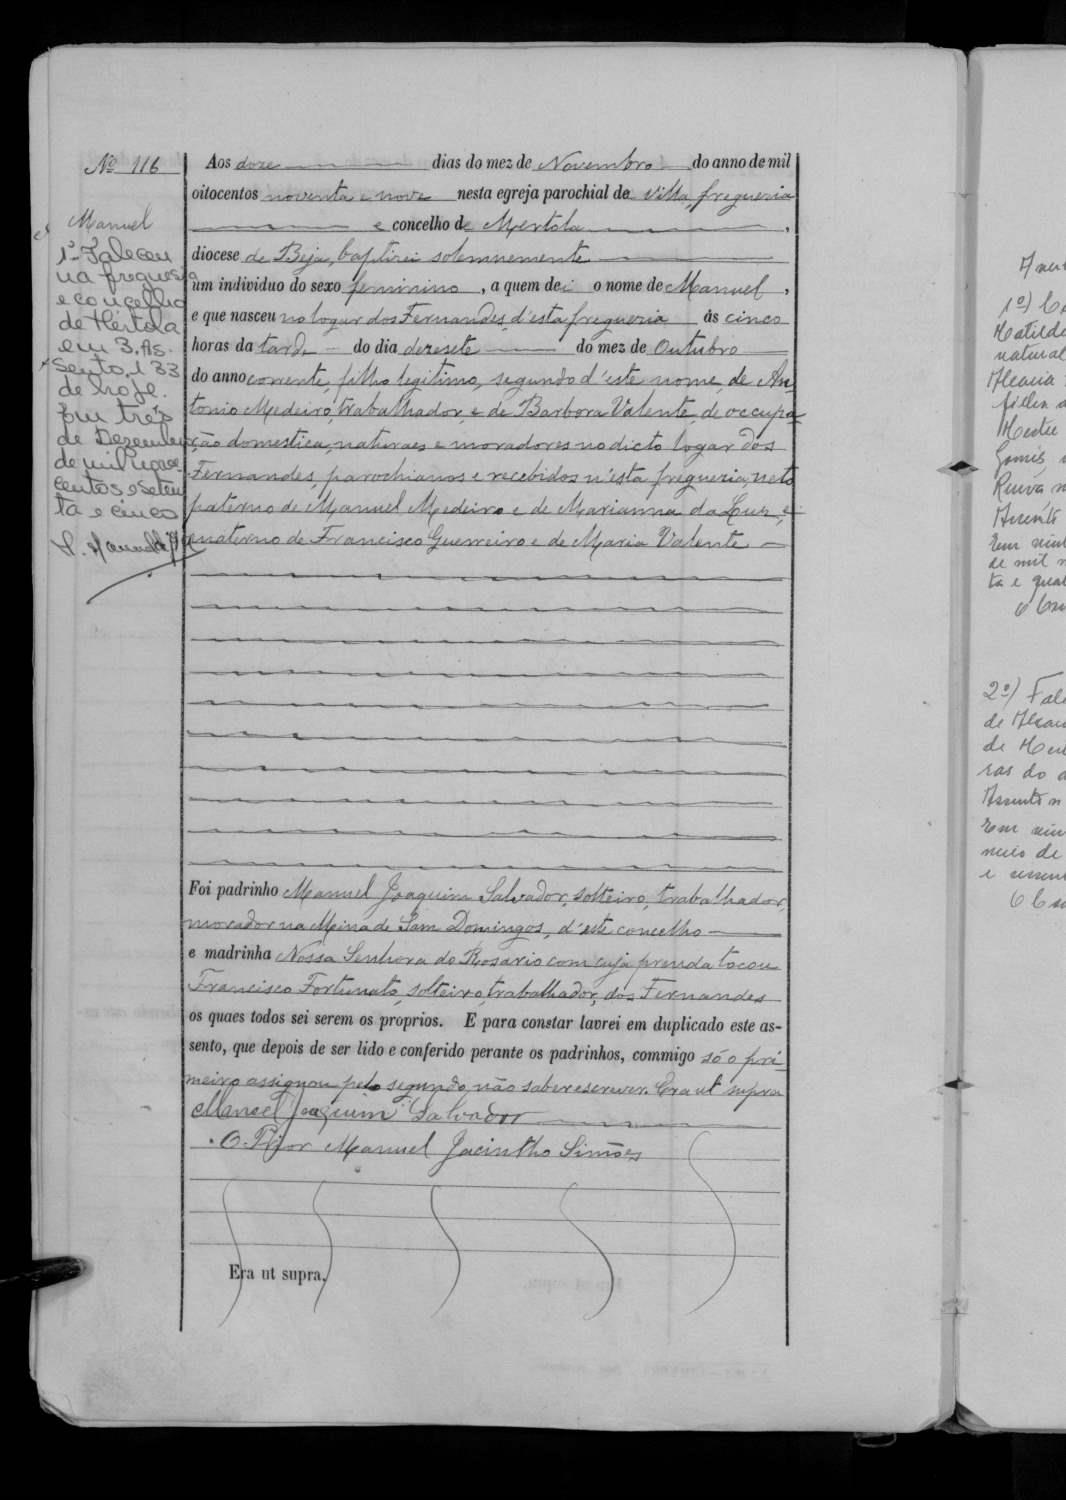 Nº 116
Manuel
1º Faleceu
na freguesia
e concelho
de Mértola
em 3. As-
sento 133
de hoje.
Em três
de Dezembro
de mil nove-
centos e seten-
ta e cinco
Aos doze dias do mez de Novembro do anno de mil
oitocentos noventa e nove nesta egreja parochial de Villa, freguezia
e concelho de Mertola,
diocese de Beja, baptizei solemnemente
um individuo do sexo feminino, a quem dei o nome de Manuel,
e que nasceu no logar dos Fernandes, d'esta freguezia ás cinco
horas da tarde do dia dezesete do mez de Outubro
do anno corrente, filho legitimo, segundo d'este nome, de An-
tonio Medeiro, trabalhador, e de Barbora Valente, de occupa-
ção domestica, naturaes e moradores no dicto logar dos
Fernandes, parochianos e recebidos n'esta freguezia, neto
paterno de Manuel Medeiro e de Marianna da Luz, e
materno de Francisco Guerreiro e de Maria Valente
Foi padrinho Manuel Joaquim Salvador, solteiro, trabalhador,
morador na Mina de Sam Domingos, d'este concelho
e madrinha Nossa Senhora do Rosario com cuja prenda tocou
Francisco Fortunato, solteiro, trabalhador, dos Fernandes
os quaes todos sei serem os proprios. E para constar lavrei em duplicado este as-
sento, que depois de ser lido e conferido perante os padrinhos, commigo só o pri-
meiro assignou pelo segundo não saber escrever. Era ut supra
Manoel Joaquim Salvador
O Prior Manuel Jacintho Simões
Era ut supra.
1º)
Matilde
natural
Gomes
de mil
2º)
de
de
ras do